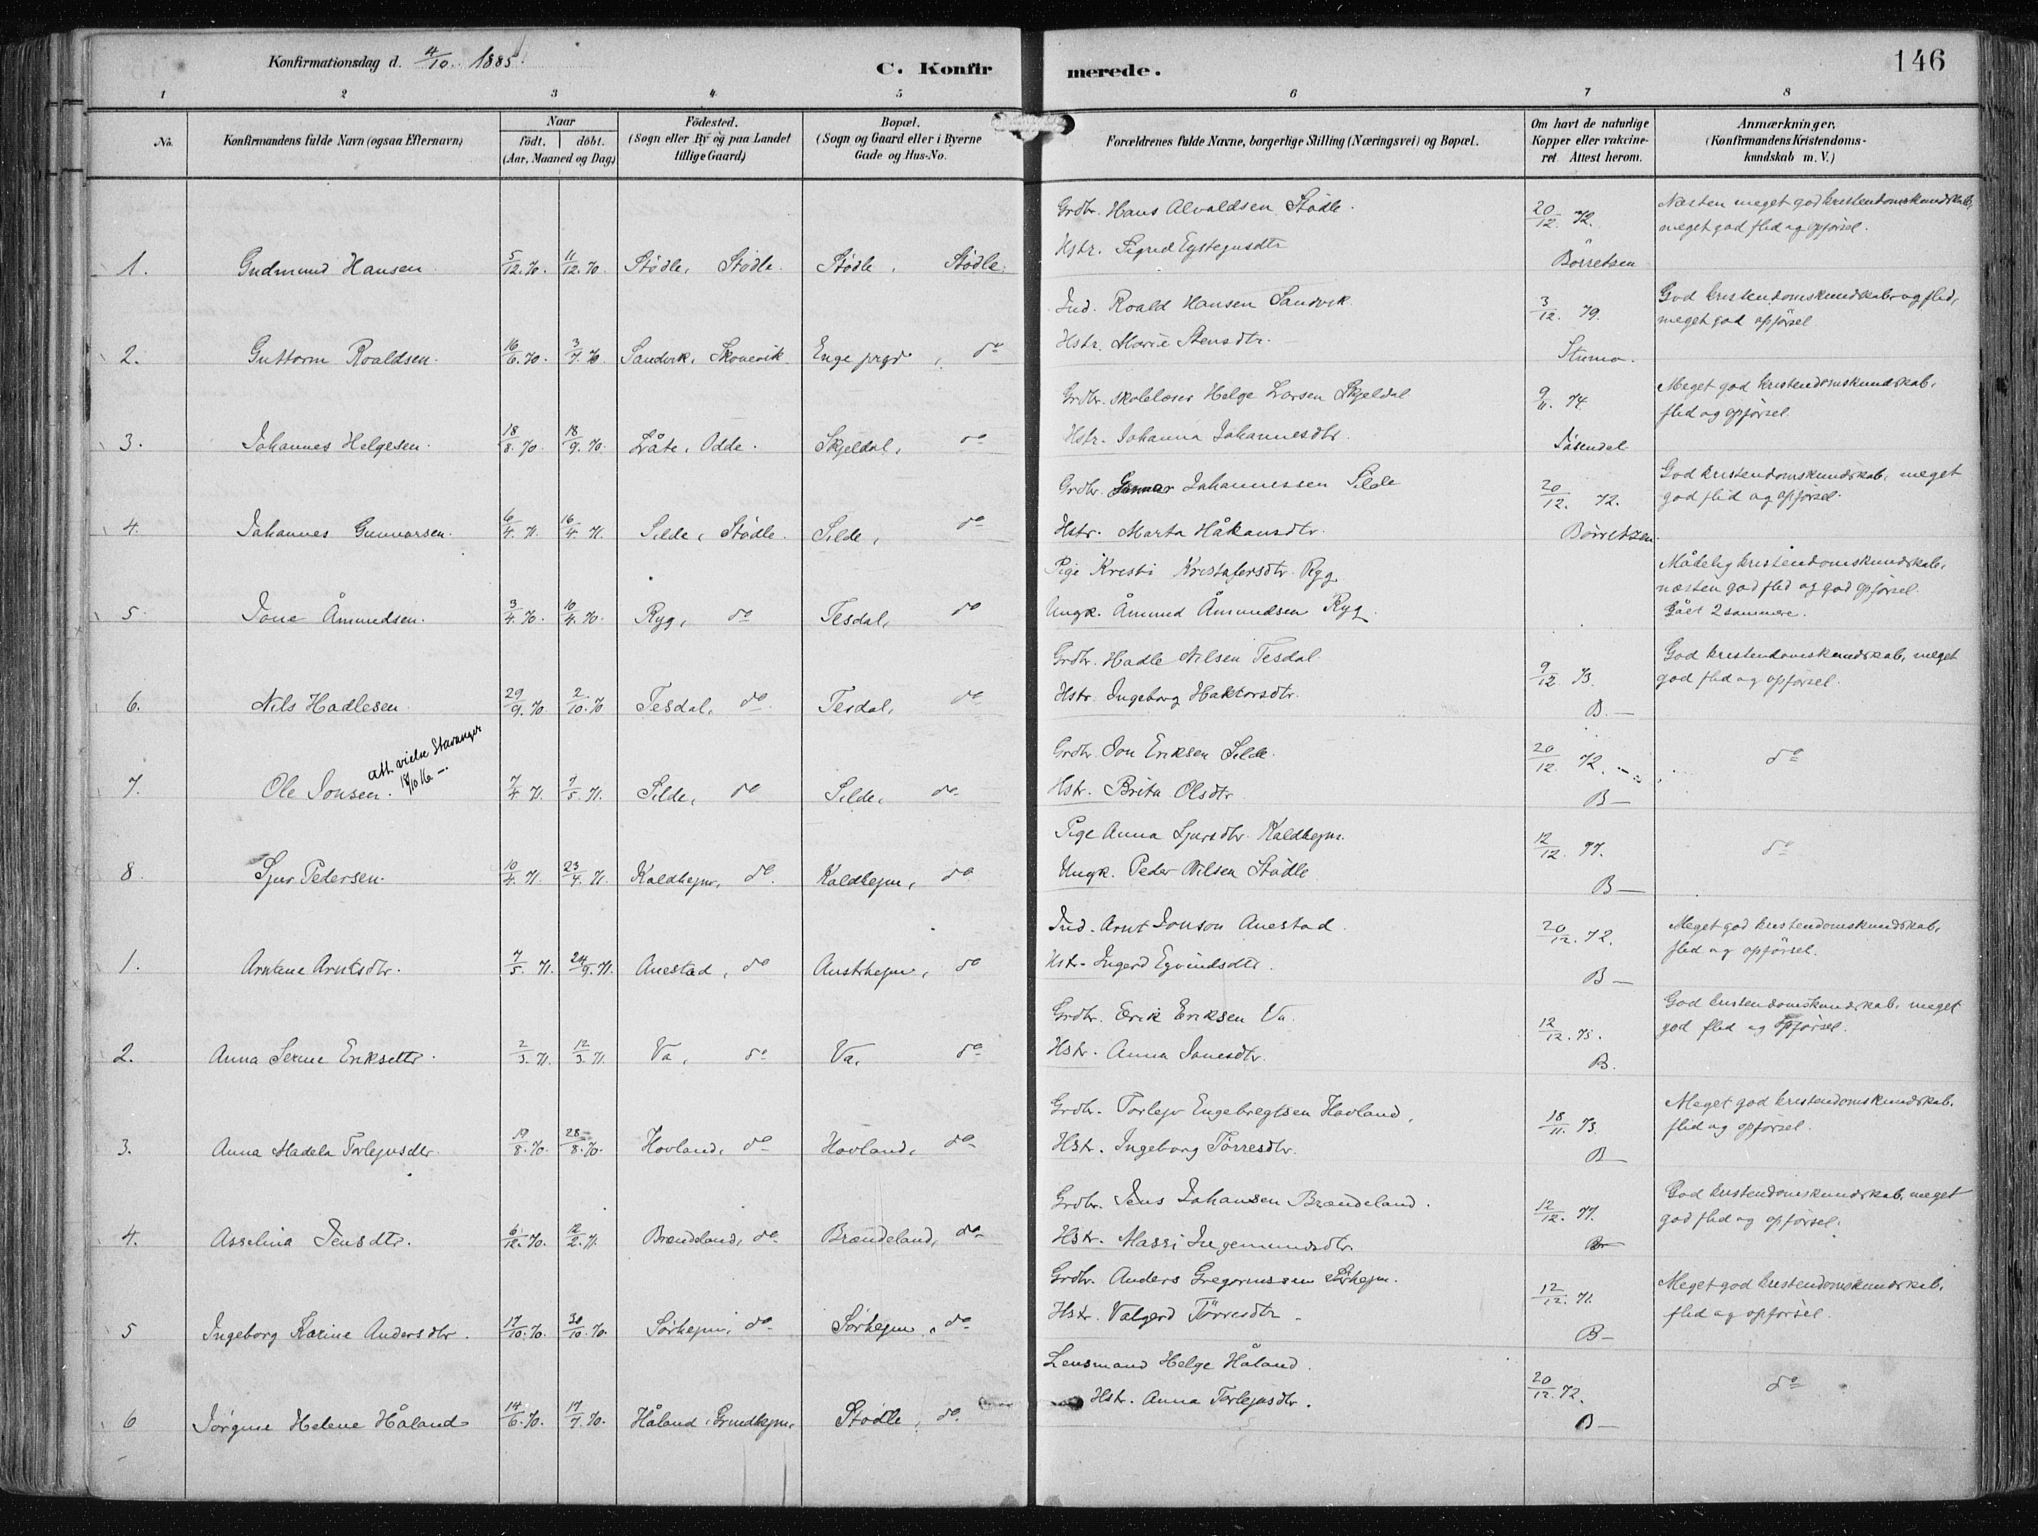 Konfirmationsdag d. 4/10 1885.
C. Konfir
merede.
146
1 2 3 4 5 6 7 8
No.
Konfirmandens fulde Navn (ogsaa Efternavn)
Naar
födt. döbt.
(Aar, Maaned og Dag)
Födested.
(Sogn eller By og paa Landet
tillige Gaard)
Bopæl.
(Sogn og Gaard eller i Byerne
Gade og Hus-No.
Forældrenes fulde Navne, borgerlige Stilling (Næringsvei) og Bopæl.
Om havt de naturlige
Kopper eller vakcine-
ret Attest herom.
Anmærkninger.
(Konfirmandens Kristendoms-
kundskab m. V.)
1. Gudmund Hansen. 5/12.70. 11/12.70. Stödle, Stödle. Stödle, Stödle.
Grdbr. Hans Alvaldsen Stödle.
Hstr. Sigrid Eystejnsdtr
20/12 72.
Börretsen
Næsten meget god kristendomskundskab,
meget god flid og opförsel.
2. Guttorm Roaldsen. 16/6.70. 3/7.70. Sandvik, Skonevik. Enge prgd, do
Ind. Roald Hansen Sandvik.
Hstr. Marie Stensdtr.
3/12. 79.
Sturno.
God kristendomskundskab og flid,
meget god opförsel
3. Johannes Helgesen. 18/8.70. 18/9.70. Låte, Odde. Skjeldal, do
Grdbr. skolelærer Helge Larsen Skjeldal
Hstr. Johanna Johannesdtr.
9/11. 74
Meget god kristendomskundskab,
flid og opförsel.
4. Johannes Gunnarsen. 6/4.71. 16/4.71. Silde, Stödle. Silde, do
Grdbr. Gunnar Johannessen Silde
Hstr. Marta Håkansdtr.
20/12. 72.
Börretzen.
God kristendomskundskab, meget
god flid og opförsel.
5. Jone Åmundsen. 3/4.70. 10/4.70. Ryg, do Tesdal, do
Pige Kristi Kristafersdtr. Ryg
Ungk. Åmund Åmundsen Ryg.
Mådelig kristendomskundskab,
næsten god flid og god opförsel.
Gået 2 sommere.
6. Nils Hadlesen. 29/9.70. 2/10.70 Tesdal, do Tesdal, do
Grdbr. Hadle Nilsen Tesdal.
Hstr. Ingeborg Haktorsdtr.
9/12 73.
B. —
God kristendomskundskab, meget
god flid og opförsel.
7. Ole Jonsen. Att. vielse Stavanger
18/10 16 —.
7/4.71. 7/5.71. Silde, do Silde, do
Grdbr Jon Eriksen Silde.
Hstr. Brita Olsdtr.
20/12 72.
B —
do
8. Sjur Pedersen. 10/4.71. 23/4.71. Kaldhejm, do. Kaldhejm, do
Pige Anna Sjursdtr. Kaldhejm.
Ungk. Peder Nilsen Stödle.
12/12. 77.
B —
do
1. Arntine Arntsdtr. 7/5.71. 24/9.71. Anestad, do Austrhejm, do
Ind. Arnt Jonson Anestad.
Hstr. Ingerd Eyvindsdtr.
20/12. 72.
B —
Meget god kristendomskundskab,
flid og opförsel.
2. Anna Serine Eriksdtr. 2/3.71. 12/3.71. Va, do Va, do
Grdbr. Erik Eriksen Va.
Hstr. Anna Jonesdtr.
12/12. 75.
B.
God kristendomskundskab, meget
god flid og opförsel.
3. Anna Madela Torlejvsdtr. 19/8.70. 28/8.70. Hovland, do Hovland, do
Grdbr. Torlejv Engebregtsen Hovland,
Hstr. Ingeborg Törresdtr.
18/11. 73.
B —
Meget god kristendomskundskab,
flid og opförsel.
4. Asselina Jensdtr. 6/12.70. 12/2.71. Brændeland, do Brændeland, do
Grdbr. Jens Johansen Brændeland.
Hstr. Massi Ingemundsdtr.
12/12. 77.
Br
God kristendomskundskab, meget
god flid og opförsel.
5 Ingeborg Karine Andersdtr. 17/10.70. 30/10.70. Sörhejm, do Sörhejm, do
Grdbr. Anders Gregoriussen Sörhejm.
Hstr. Valgerd Törresdtr.
12/12. 71.
B —
Meget god kristendomskundskab,
flid og opförsel.
6 Jörgine Helene Håland 14/6.70. 17/7.70. Håland, Grindhejm, Stödle, do
Lensmand Helge Håland.
Hstr. Anna Torlejvsdtr.
20/12. 72.
B —
do